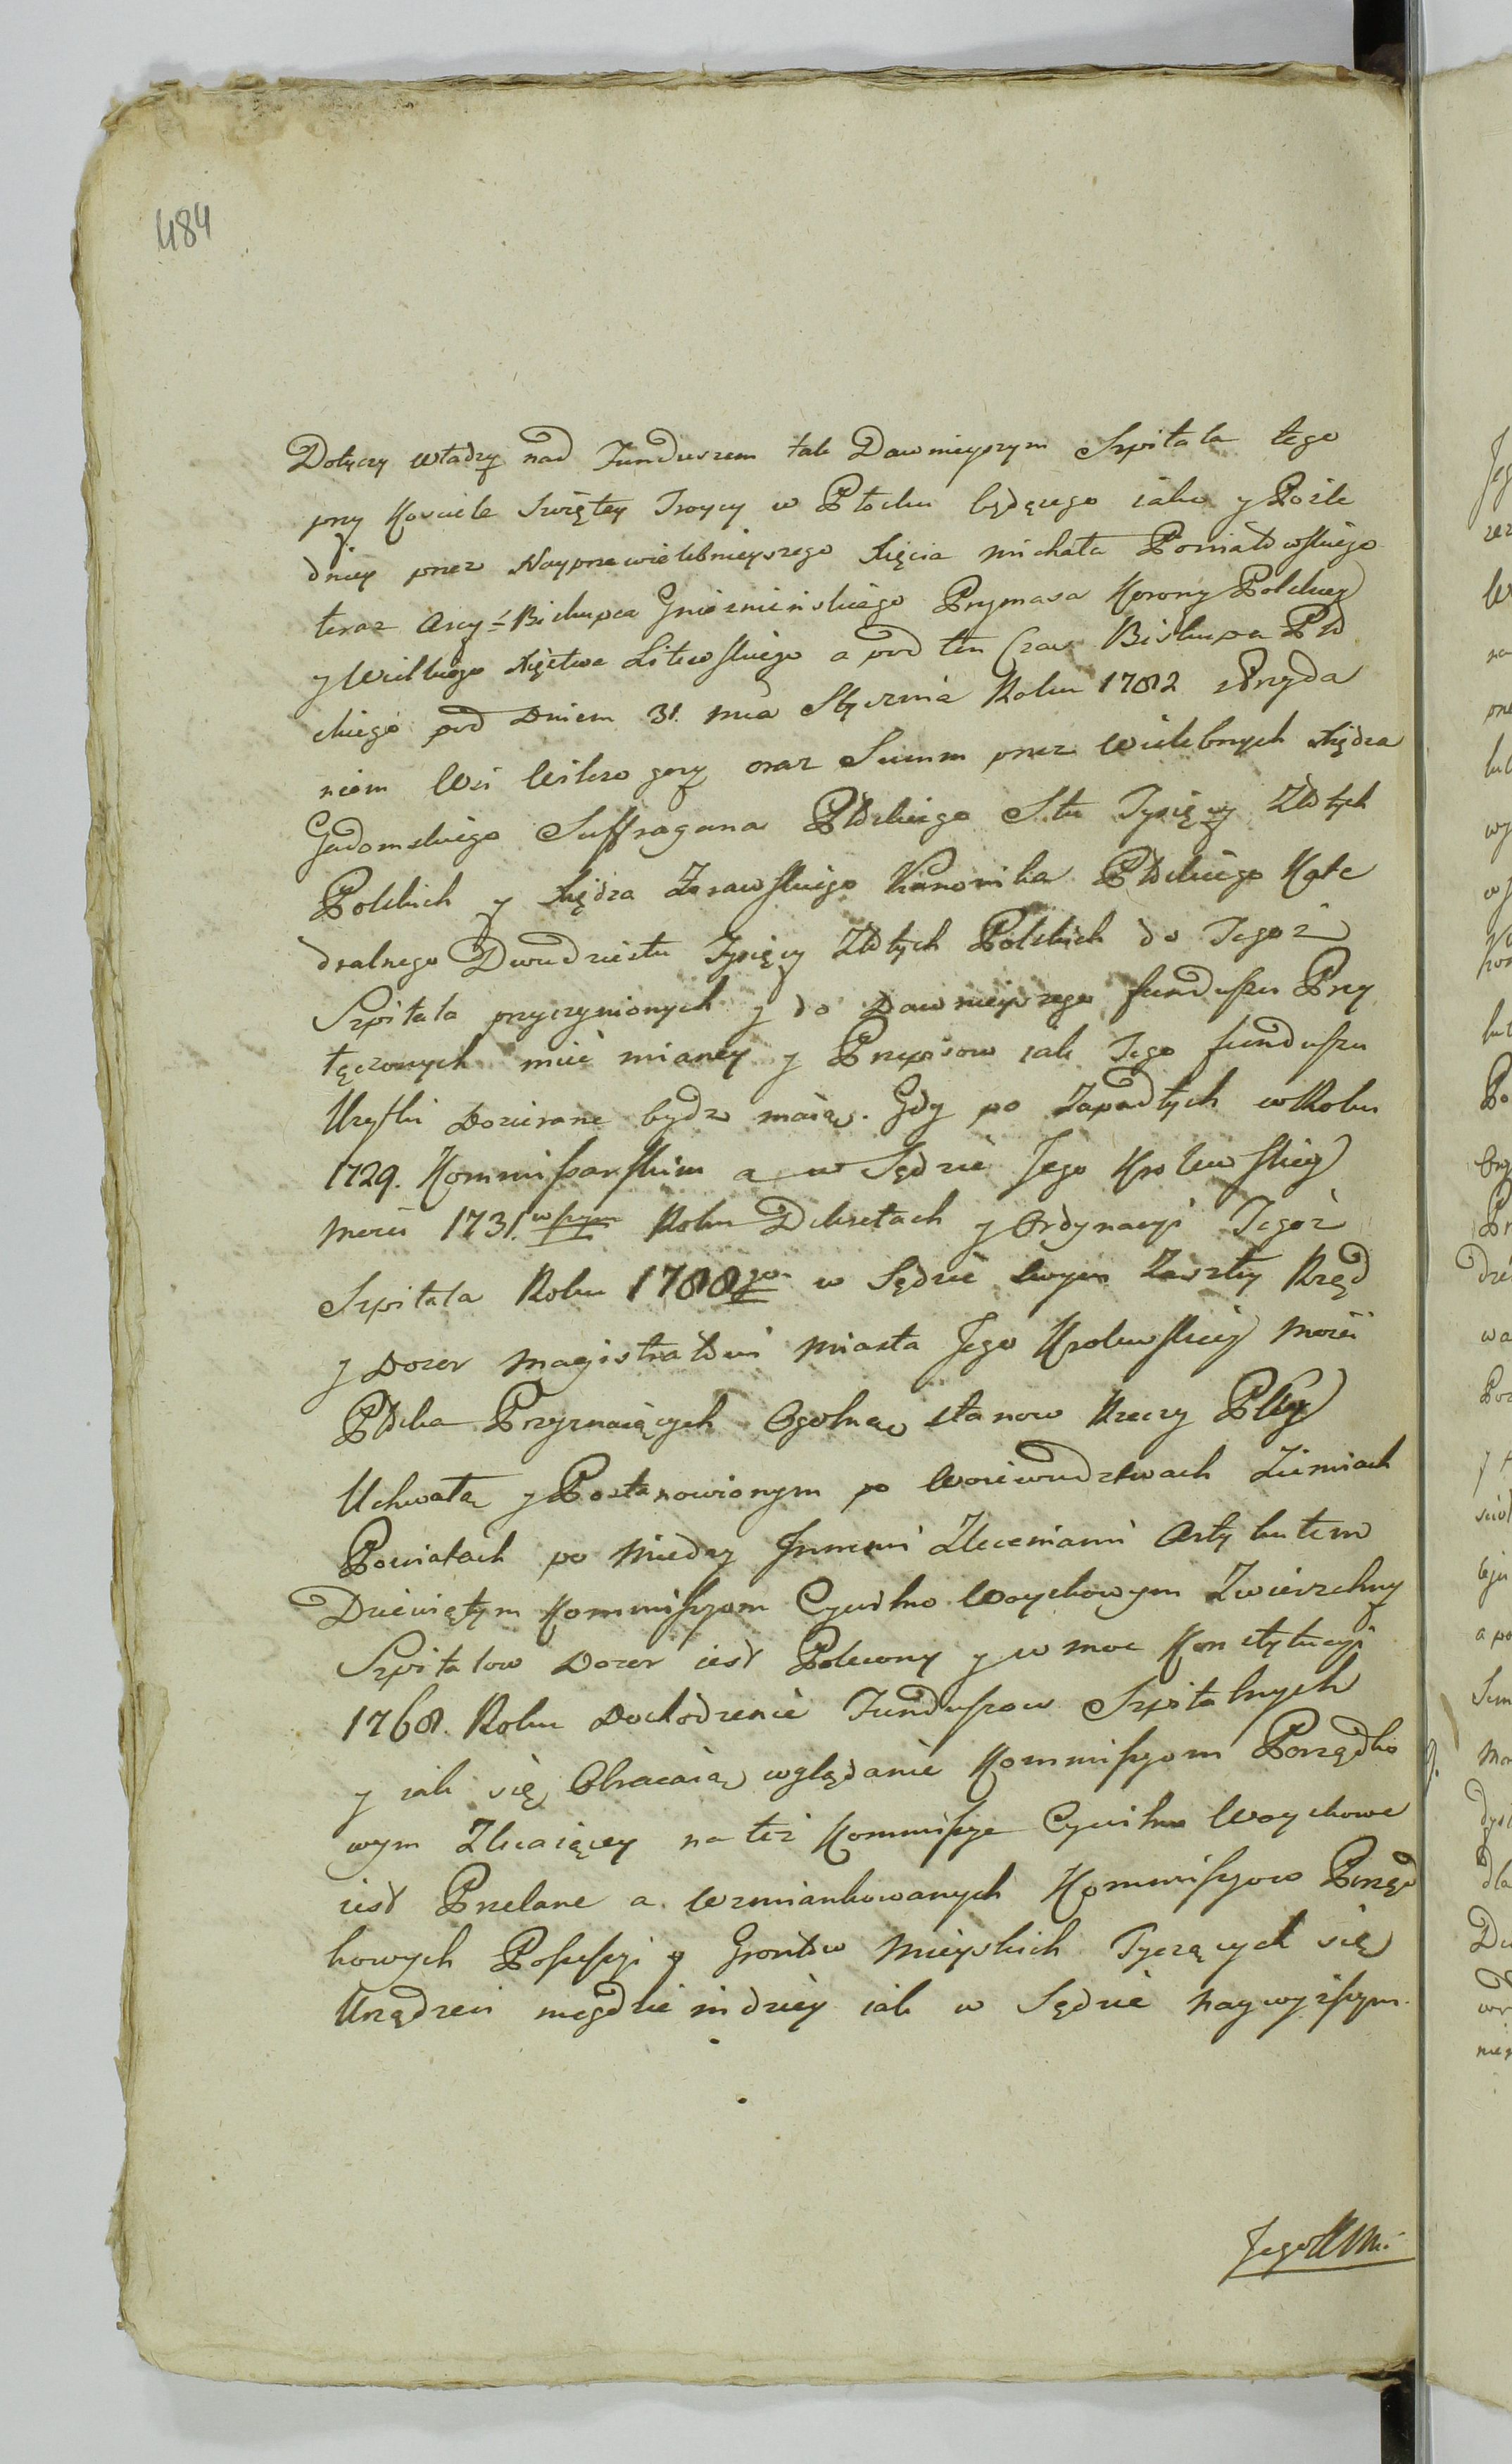 484
Dotyczy władzy nad Funduszem tak Dawnieyszym Szpitala tego
przy Kosciele Swiętey Troycy w Płocku będącego iako y Pośle
dniey przez Nayprzewielebnieyszego Xięcia Michała Poniatowskiego
teraz Arcy-Biskupa Gnieznienskiego Prymasa Korony Polskiey
y Wielkiego Xięstwa Litewskiego a pod ten Czas Biskupa Pło
ckiego pod Dniem 31. mca Stycznia Roku 1782 z Przyda
niem Wsi Wilczogory oraz Summ przez Wielebnych Xiędza
Gadomskiego Suffragana Płockiego Stu Tysięcy Złotych
Polskich y Xiędza Zerawskiego Kanonika Płockiego Kate
dralnego Dwudziestu Tysięcy Złotych Polskich do Tegoż
Szpitala przyczynionych y do Dawnieyszego funduszu Przy
łączonych mieć mianey y Przepisow iak Tego funduszu
Użytki Dozierane bydz maią. Gdy po Zapadłych w Roku
1729. Kommissarskim a w Sędzie Jego Krolewskiey
Mości 1731.wszym Roku Dekretach y Ordynacyi Tegoż
Szpitala Roku 1788go w Sędzie swym Zaszłey Rząd
y Dozor Magistratowi Miasta Jego Krolewskiey Mości
Płocka Przyznaiących Ogolną stanow Rzeczy Pltey
Uchwałą y Postanowionym po Woiewudztwach Ziemiach
Powiatach po Miedzy Innemi Zleceniami Artykułem
Dziewiętym Kommissyom Cywilno Woyskowym Zwierzchny
Szpitalow Dozor iest Polecony y w moc Konstytucyi
1768. Roku Dochodzenie Funduszow Szpitalnych
y iak się Obracaią wglądanie Kommissyom Porządko
wym Zlecaiącey na też Kommissye Cywilno Woyskowe
iest Przelane a wzmiankowanych Kommissyow Porząd
kowych Possessyi y Grontow Mieyskich Tyczących się
Urządzen niegdzie indziey iak w Sędzie naywyższym
Jego KMci